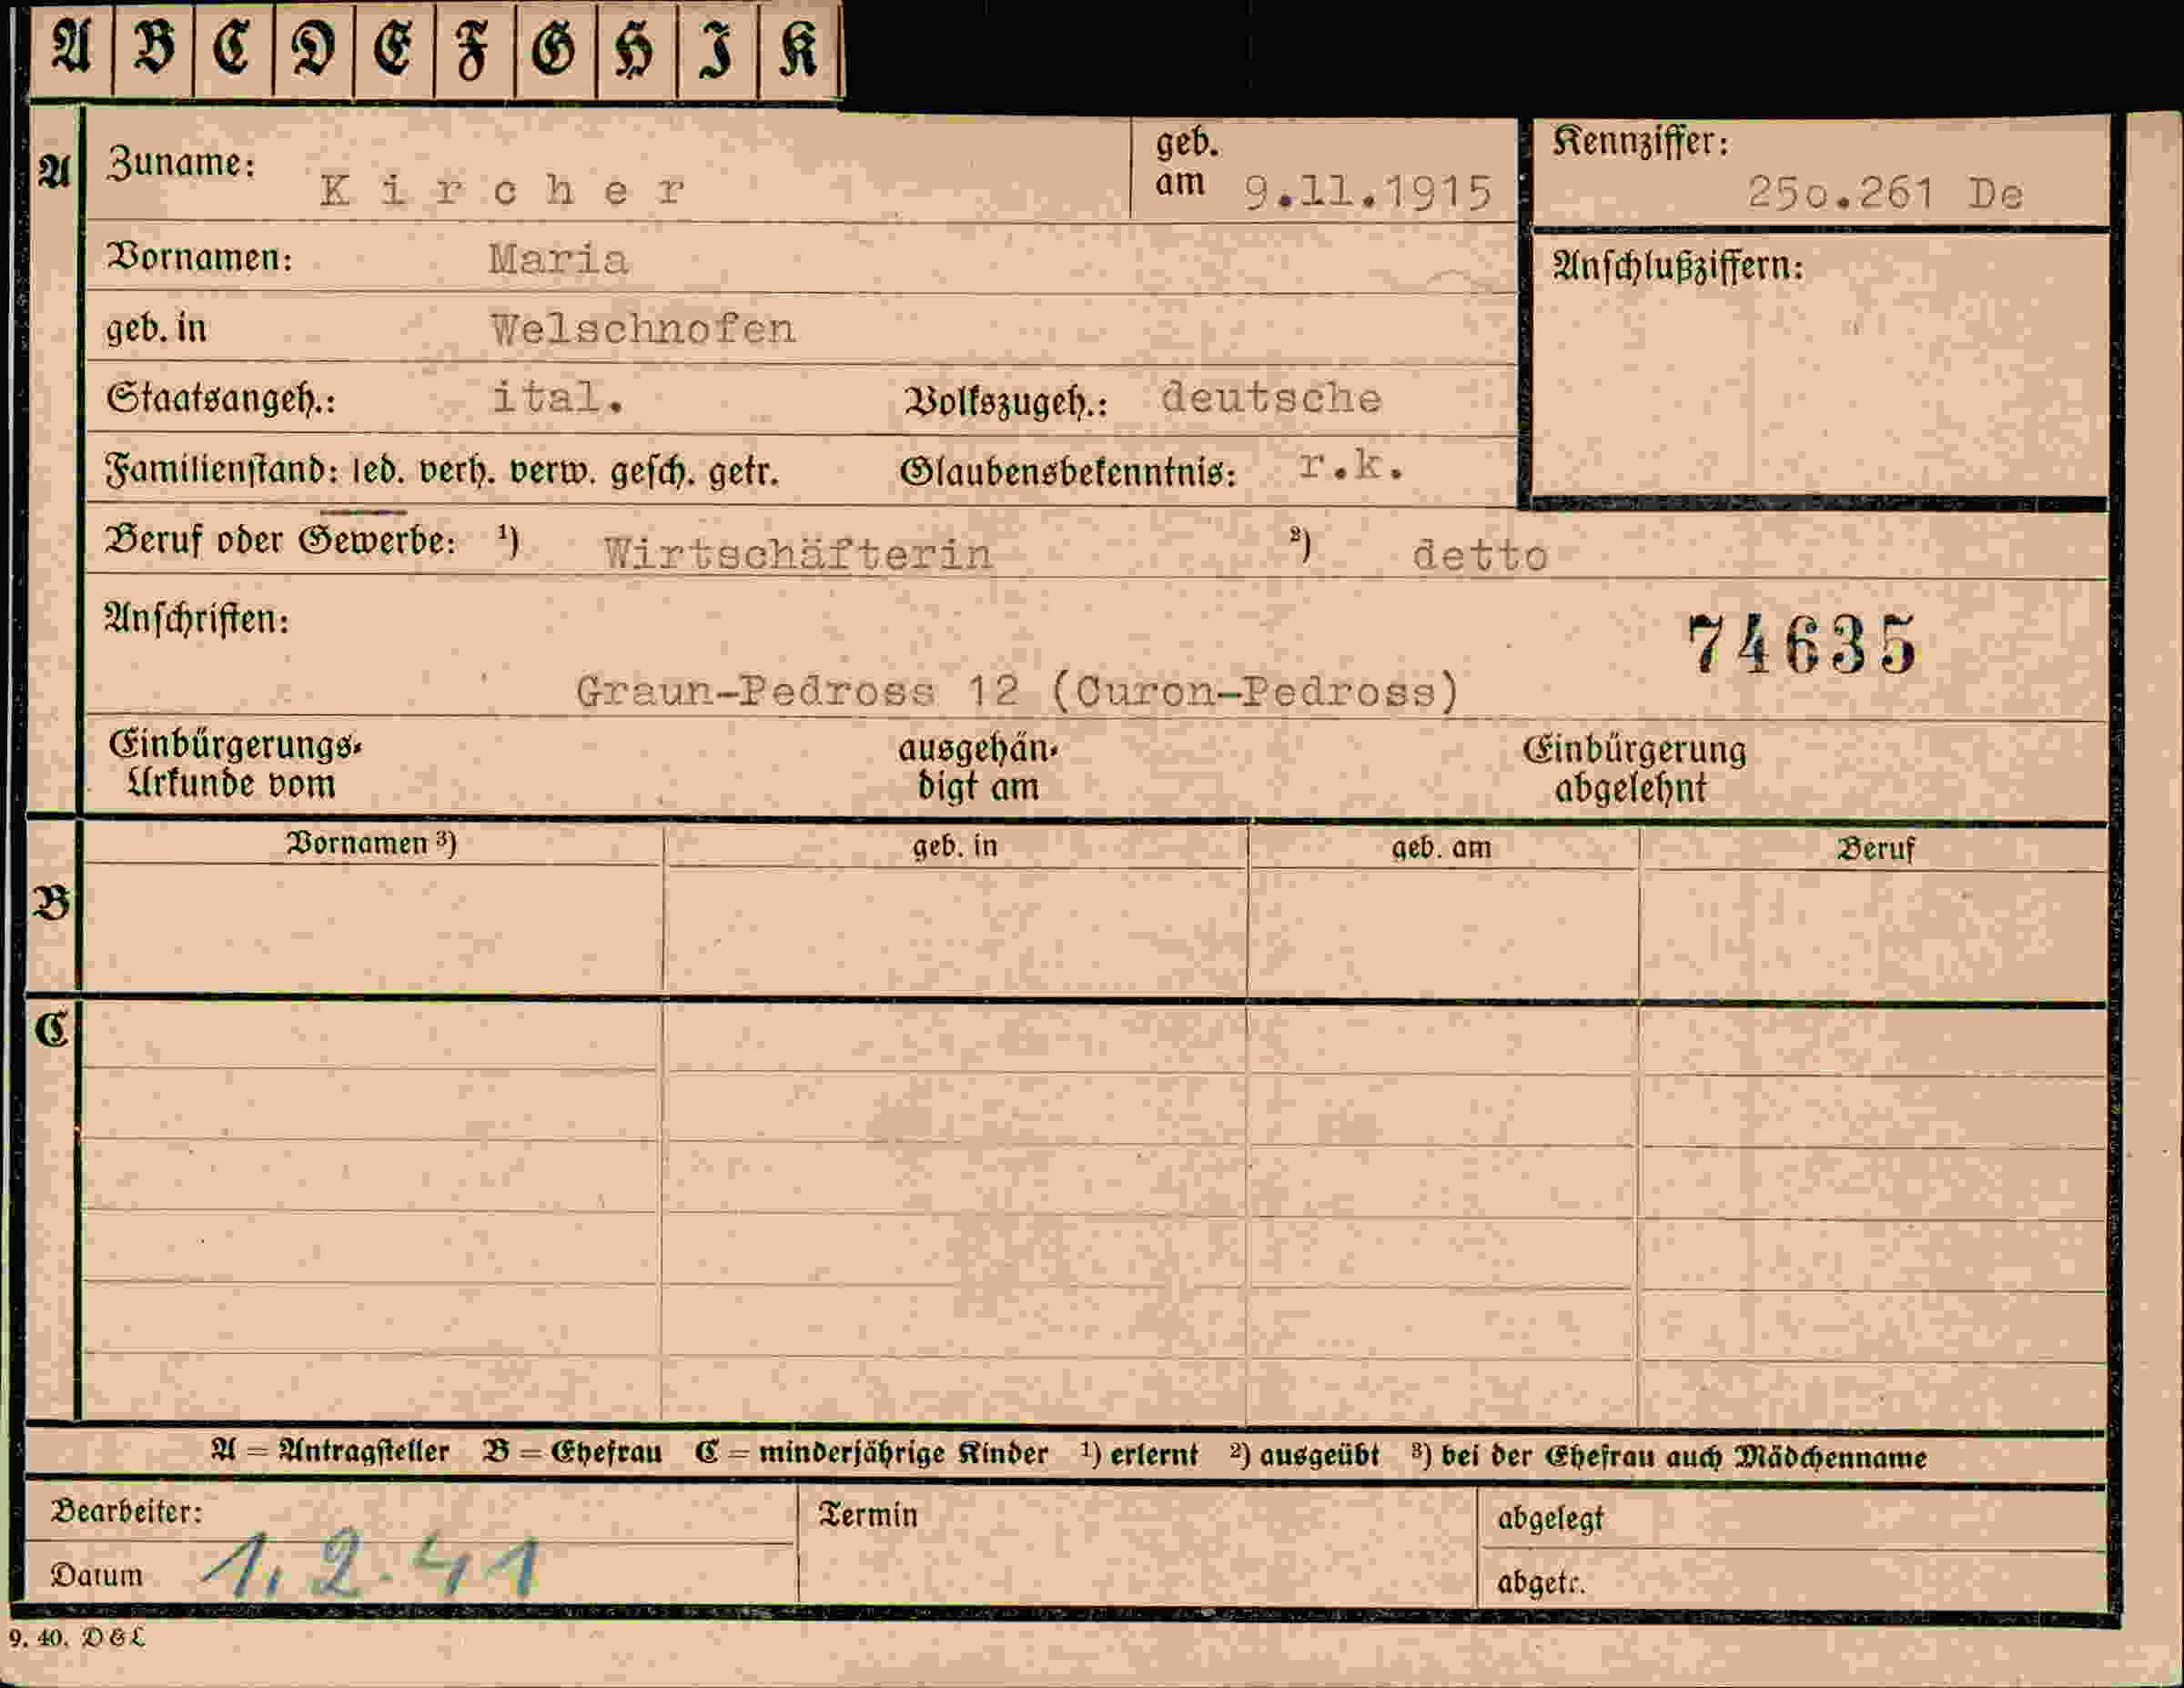 A B C D E F G H I K
A Zuname: Kircher geb. am 9.11.1915 Kennziffer: 25o.261 De
Vornamen: Maria Anschlußziffern:
geb. in Welschnofen
Staatsangeh.: ital. Volkszugeh.: deutsche
Familienstand: led. verh. verw. gesch. getr. Glaubensbekenntnis: r.k.
Beruf oder Gewerbe: ¹) Wirtschäfterin ²) detto
Anschriften: 74635
Graun-Pedross 12 (Curon-Pedross)
Einbürgerungs- ausgehän- Einbürgerung
Urkunde vom digt am abgelehnt
Vornamen ³) geb. in geb. am Beruf
B
C
A = Antragsteller B = Ehefrau C = minderjährige Kinder ¹) erlernt ²) ausgeübt ³) bei der Ehefrau auch Mädchenname
Bearbeiter: Termin abgelegt
Datum 1.2.41 abgetr.
9. 40. D & L